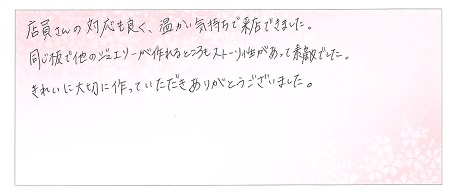 店員さんの対応も良く、温かい気持ちで来店できました。
同じ板で他のジュエリーが作れるところもストーリー性があって素敵でした。
きれいに大切に作っていただきありがとうございました。